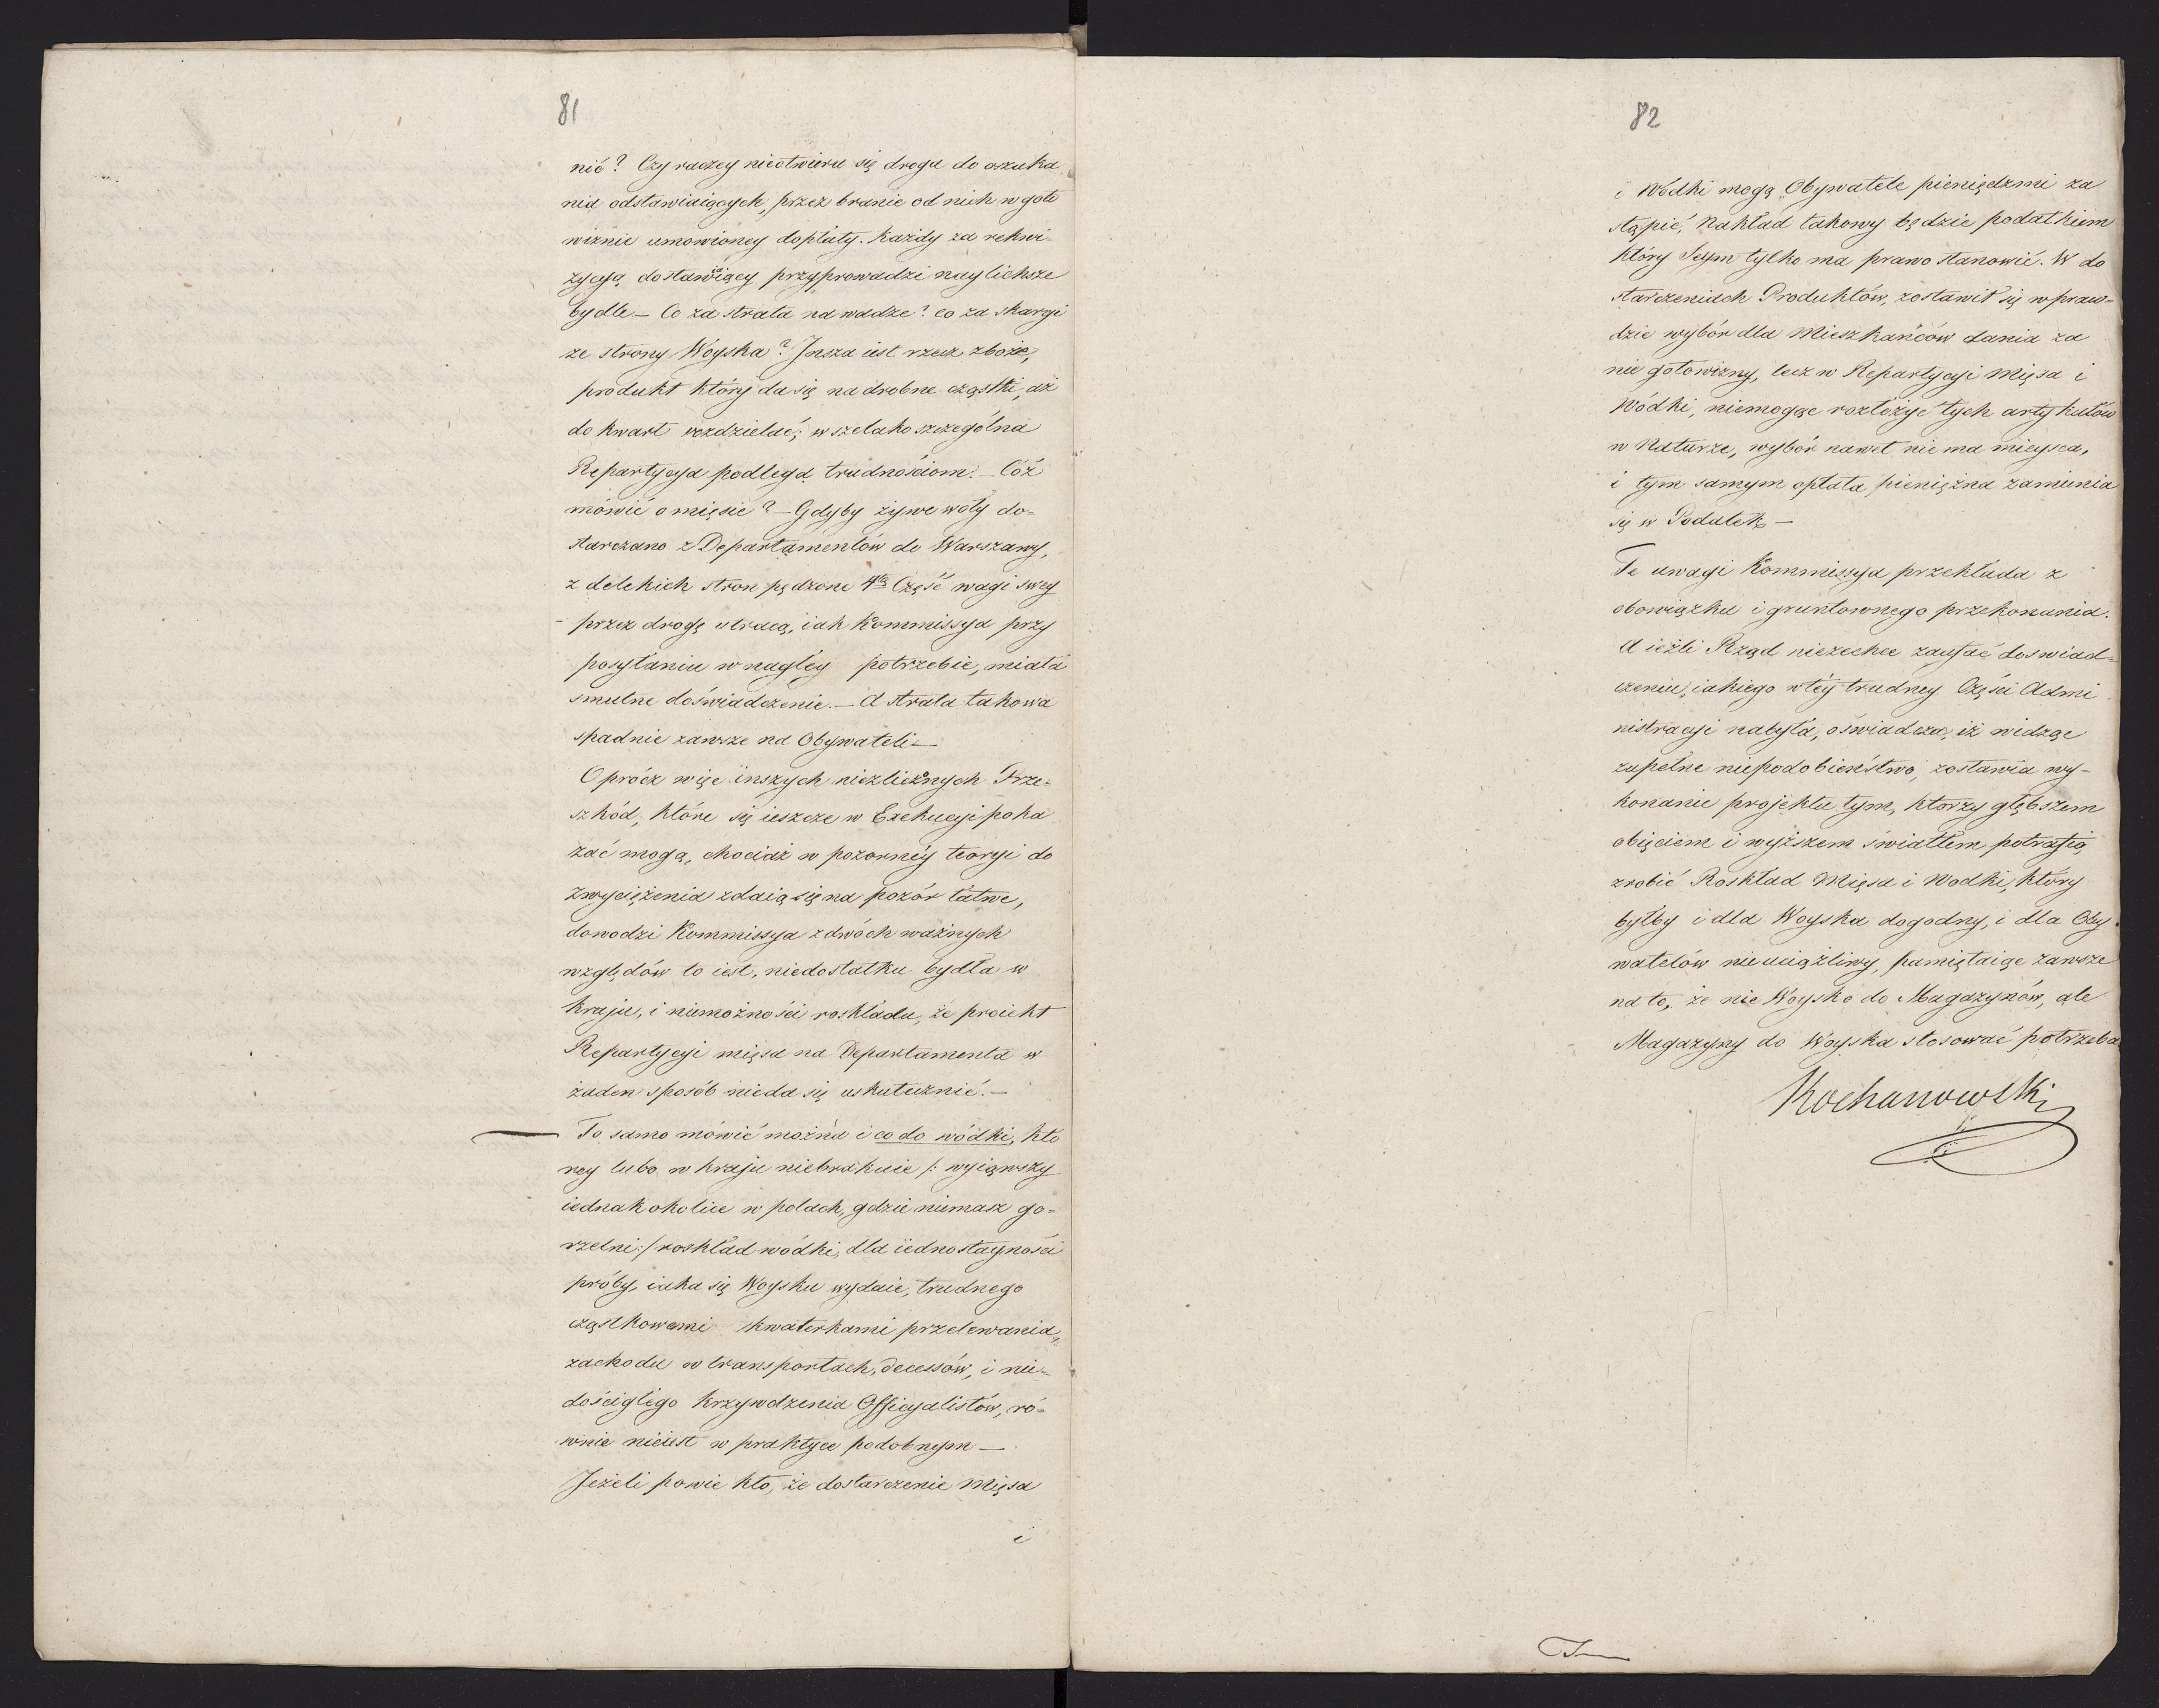 81
nić? Czy raczey nieotwiera się droga do oszuka
nia odstawiaiących, przez branie od nich w goto
wiznie umowioney dopłaty. Każdy za rekwi-
zycyą dostawiaiący przyprowadzi naylichsze
bydle — Co za strata na wadze? co za skargi
ze strony Woyska? Jnsza iest rzecz zboże,
produkt który da się na drobne cząstki, aż
do kwart rozdzielać; wszelako szczególna
Repartycya podlega trudnościom. — Cóż
mówić o mięsie? — Gdyby żywe woły do=
starczano z Departamentów do Warszawy,
z delekich stron pędzone 4tą Część wagi swey
przez drogę utracą, iak Kommissya przy
posyłaniu w nagłéy potrzebie, miała
smutne doświadczenie. — A strata takowa
spadnie zawsze na Obywateli —
Oprócz więc inszych niezlicznych Prze=
szkód, które się ieszcze w Exekucyi poka
zać mogą, chociaż w pozornéy teoryi do
zwyciężenia zdaią się na pozór łatwe,
dowodzi Kommissya z dwóch ważnych
względów to iest, niedostatku bydła w
kraju, i niemożności roskładu, że proiekt
Repartycyi mięsa na Departamenta w
żaden sposób nieda się uskutecznić. —
To samo mówić można i co do wódki, któ
rey lubo w kraju niebrakuie /: wyiąwszy
iednak okolice w polach, gdzie niemasz go=
rzelni :/ roskład wódki, dla iednostayności
próby, iaka się Woysku wydaie, trudnego
cząstkowemi kwaterkami przelewania,
zachodu w transportach, decessów, i nie=
dościgłego krzywdzenia Officyalistów, ró=
wnie nieiest w praktyce podobnym —
Jeżeli powie kto, że dostarczenie Mięsa
i
82
i Wódki mogą Obywatele pieniędzmi za
stąpić, Nakład takowy będzie podatkiem
który Seym tylko ma prawo stanowić. W do
starczeniach Produktów, zostawił się wpraw=
dzie wybór dla Mieszkańców dania za
nie gotowizny, lecz w Repartycyi Mięsa i
Wódki, niemogąc rozłożyć tych artykułów
w Naturze, wybór nawet nie ma mieysca,
i tym samym opłata pieniężna zamienia
się w Podatek —
Te uwagi Kommissya przekłada z
obowiązku i gruntownego przekonania.
A ieżli Rząd niezechce zaufać doswiad=
czeniu, iakiego w téy trudney Części Admi
nistracyi nabyła, oświadcza, iż widząc
zupełne niepodobieństwo, zostawia wy=
konanie projektu tym, którzy głębszem
obięciem i wyższem światłem potrafią
zrobić Roskład Mięsa i Wodki, który
byłby i dla Woyska dogodny, i dla Oby
watelów nieuciążliwy, pamiętaiąc zawsze
na to, że nie Woysko do Magazynów, ale
Magazyny do Woyska stosować potrzeba
Kochanowski